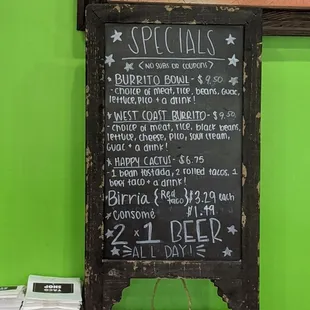 SPECIALS
(NO SUBS OR COUPONS)
BURRITO BOWL - $9.50
- choice of meat, rice, beans, guac,
lettuce, pico + a drink!
WEST COAST BURRITO - $9.50
- choice of meat, rice, black beans,
lettuce, cheese, pico, sour cream,
guac + a drink!
HAPPY CACTUS - $6.75
- 1 bean tostada, 2 rolled tacos, 1
beef taco + a drink!
Birria {Red taco} $3.29 each
Consomé $1.49
2 x 1 BEER
ALL DAY!
TACO
SHOP